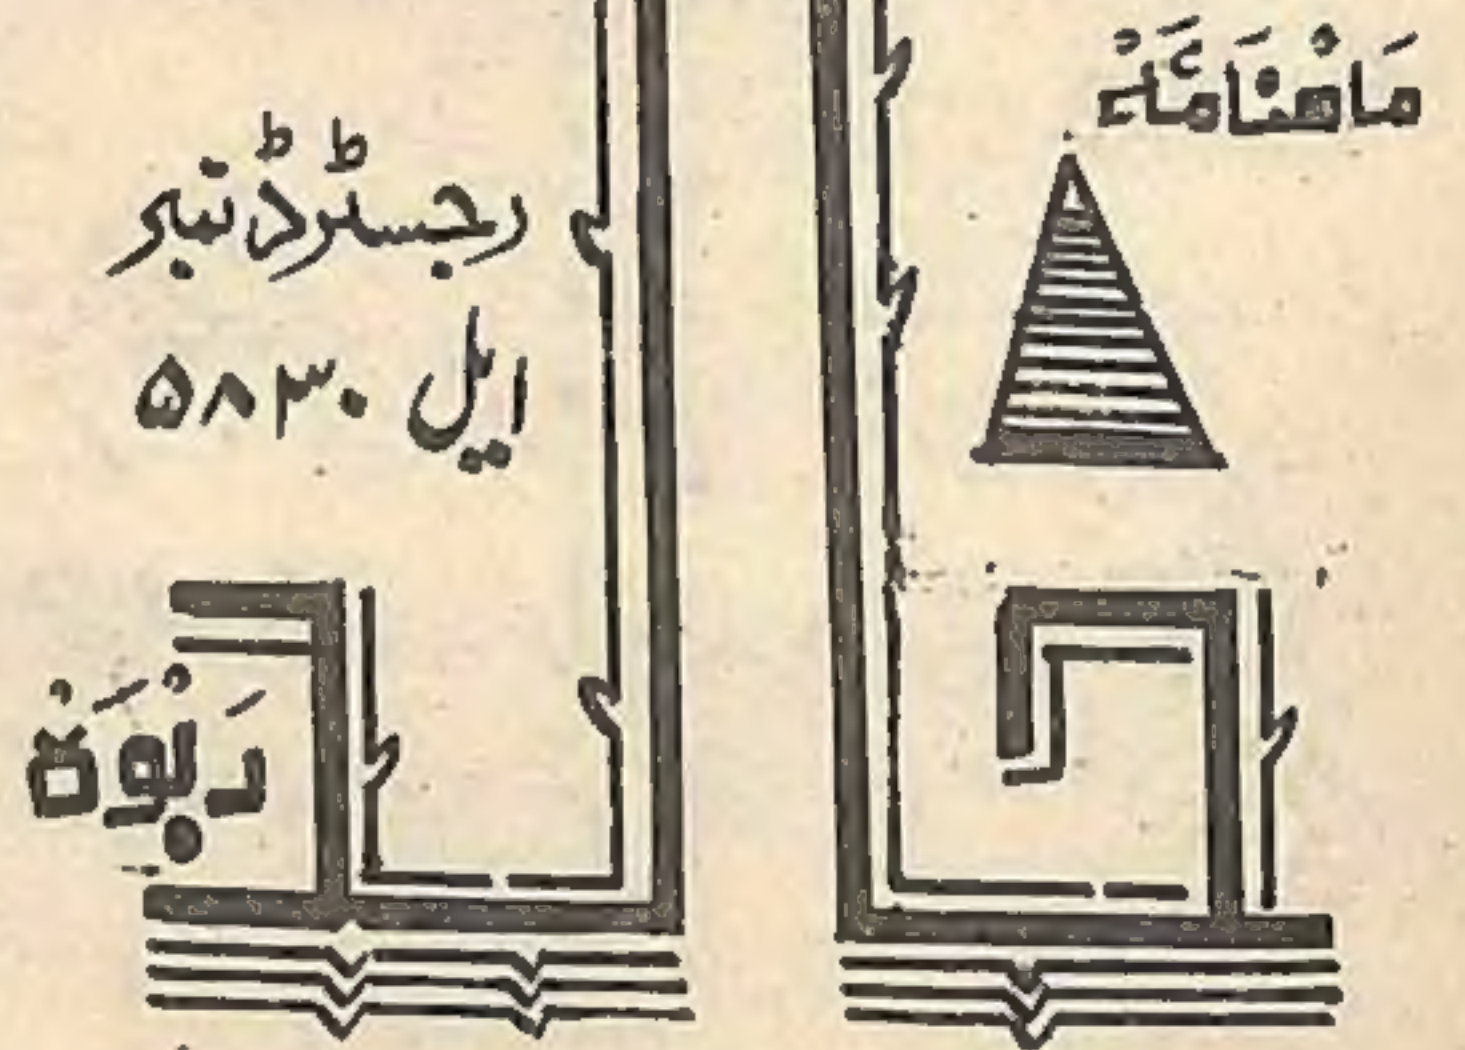 مَاهْنَامَہْ
خالد
رجسٹرڈ نمبر
ایل ۵۸۳۰
رَبْوَہْ